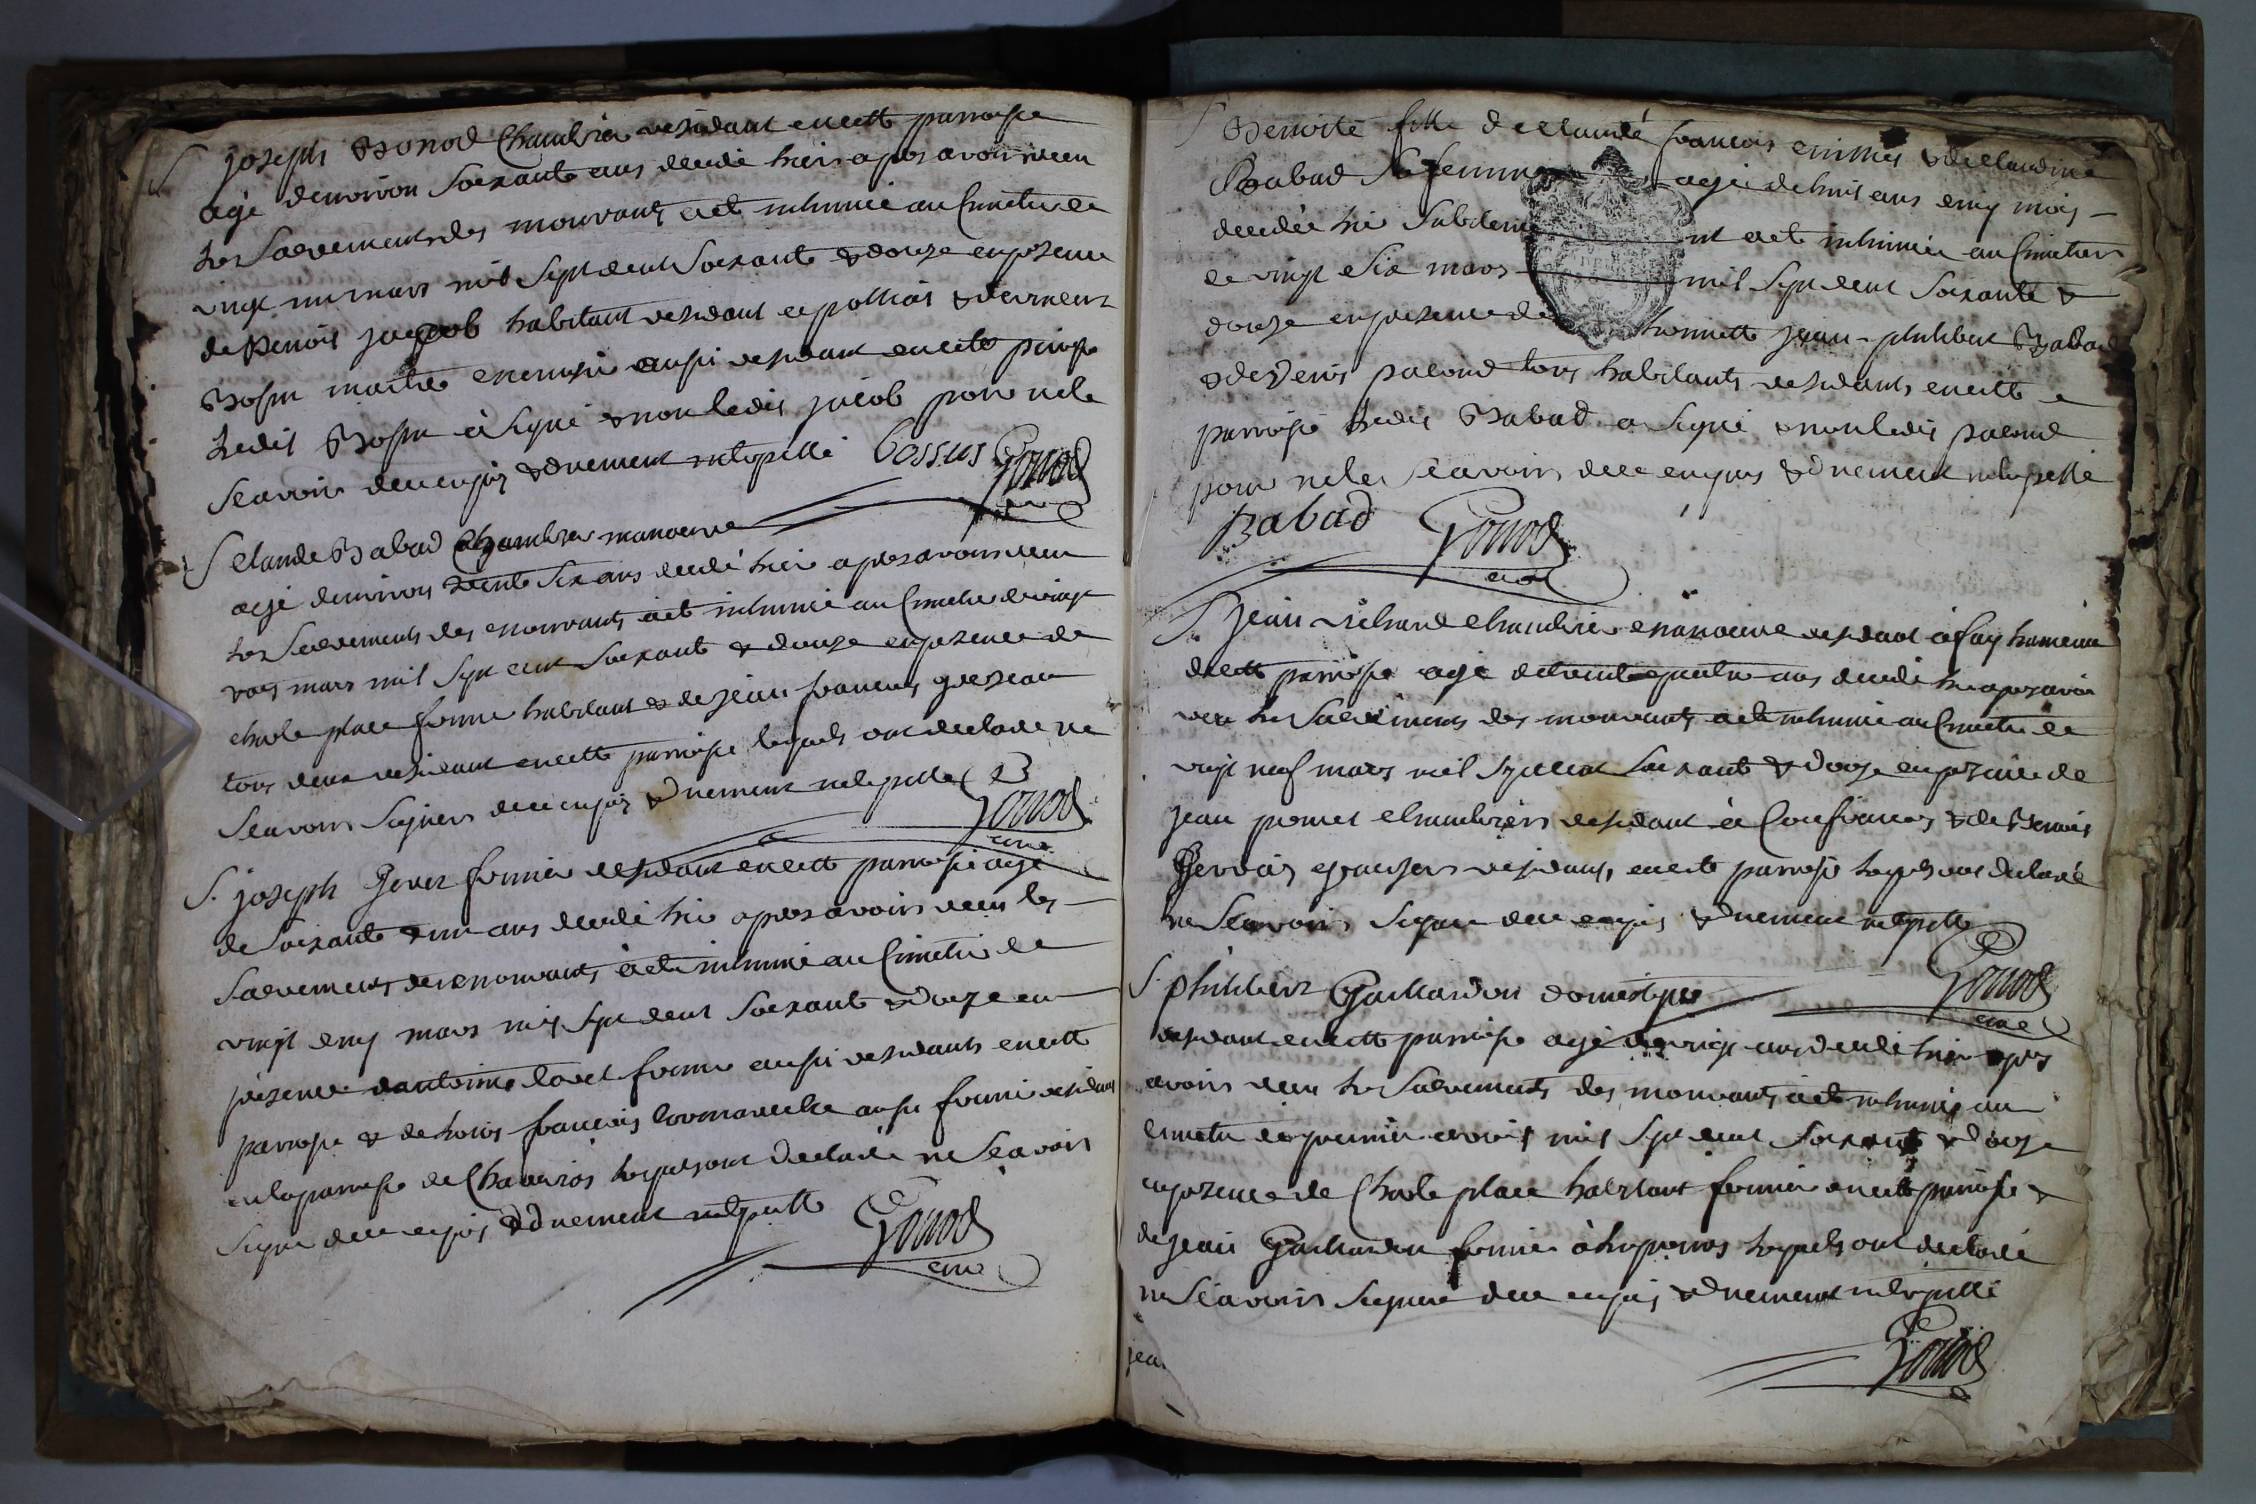 S. joseph Bonod Chambrier residant en cette parroisse
agé denviron soixante ans decedé hier apres avoir receu
les sacrements des mourants a eté inhumé au Cimetiere le
vingt un mars mil sept cent soixante & douze en presence
de Benoit jacob habitant residant a polliat &
Bossu maitre aussi residant en cette parroisse
ledit Bossu a signé & non ledit jacob pour ne le
scavoir de ce enquis & duement interpellé Bossus Gonod
curé
S claude Babad Chambrier manoeuvre
agé denviron trente six ans decedé hier apres avoir receu
les sacrements des mourants a eté inhumé au Cimetiere le vingt
trois mars mil sept cent soixante & douze en presence de
charle place fermier habitant & de jean francois
tous deux residant en cette parroisse lesquels ont declaré ne
scavoir signer de ce enquis & duement interpellé
Gonod
curé
S. joseph Gerver fermier residant en cette parroisse agé
de soixante & un ans decedé hier apres avoir receu les
sacrements des mourants a eté inhumé au Cimetiere le
vingt cinq mars mil sept cent soixante & douze en
presence dantoine fermier aussi residants en cette
parroisse & de louis francois aussi fermier residant
en la parroisse de lesquels ont declaré ne scavoir
signer de ce enquis & duement interpellé
Gonod
curé
S Benoite fille de claude francois & de claudine
Babad sa femme agée de huit ans cinq mois
decedée hier subitement a eté inhumée au Cimetiere
le vingt six mars mil sept cent soixante &
douze en presence de honnette jean-philibert Babad
& de Denis pacoud tous habitants residants en cette
parroisse ledit Babad a signé & non ledit pacoud
pour ne le scavoir de ce enquis & duement interpellé
Babad Gonod
curé
S. jean richard chambrier manoeuvre residant a fay hameau
de cette parroisse agé de trente quatre ans decedé hier apres avoir
receu les sacrements des mourants a eté inhumé au Cimetiere le
vingt neuf mars mil sept cent soixante & douze en presence de
jean chambrier residant a Confrancon & de Benoit
Gervais residants en cette parroisse lesquels ont declaré
ne scavoir signer de ce enquis & duement interpellé
Gonod
curé
S. philibert Gaillardon domestique
residant en cette parroisse agé de vingt ans decedé hier apres
avoir receu les sacrements des mourants a eté inhumé au
cimetiere le premier avril mil sept cent soixante & douze
en presence de Charle place habitant fermier en cette parroisse &
de jean Gaillardon fermier lesquels ont declaré
ne scavoir signer de ce enquis & duement interpellé
Gonod
jea